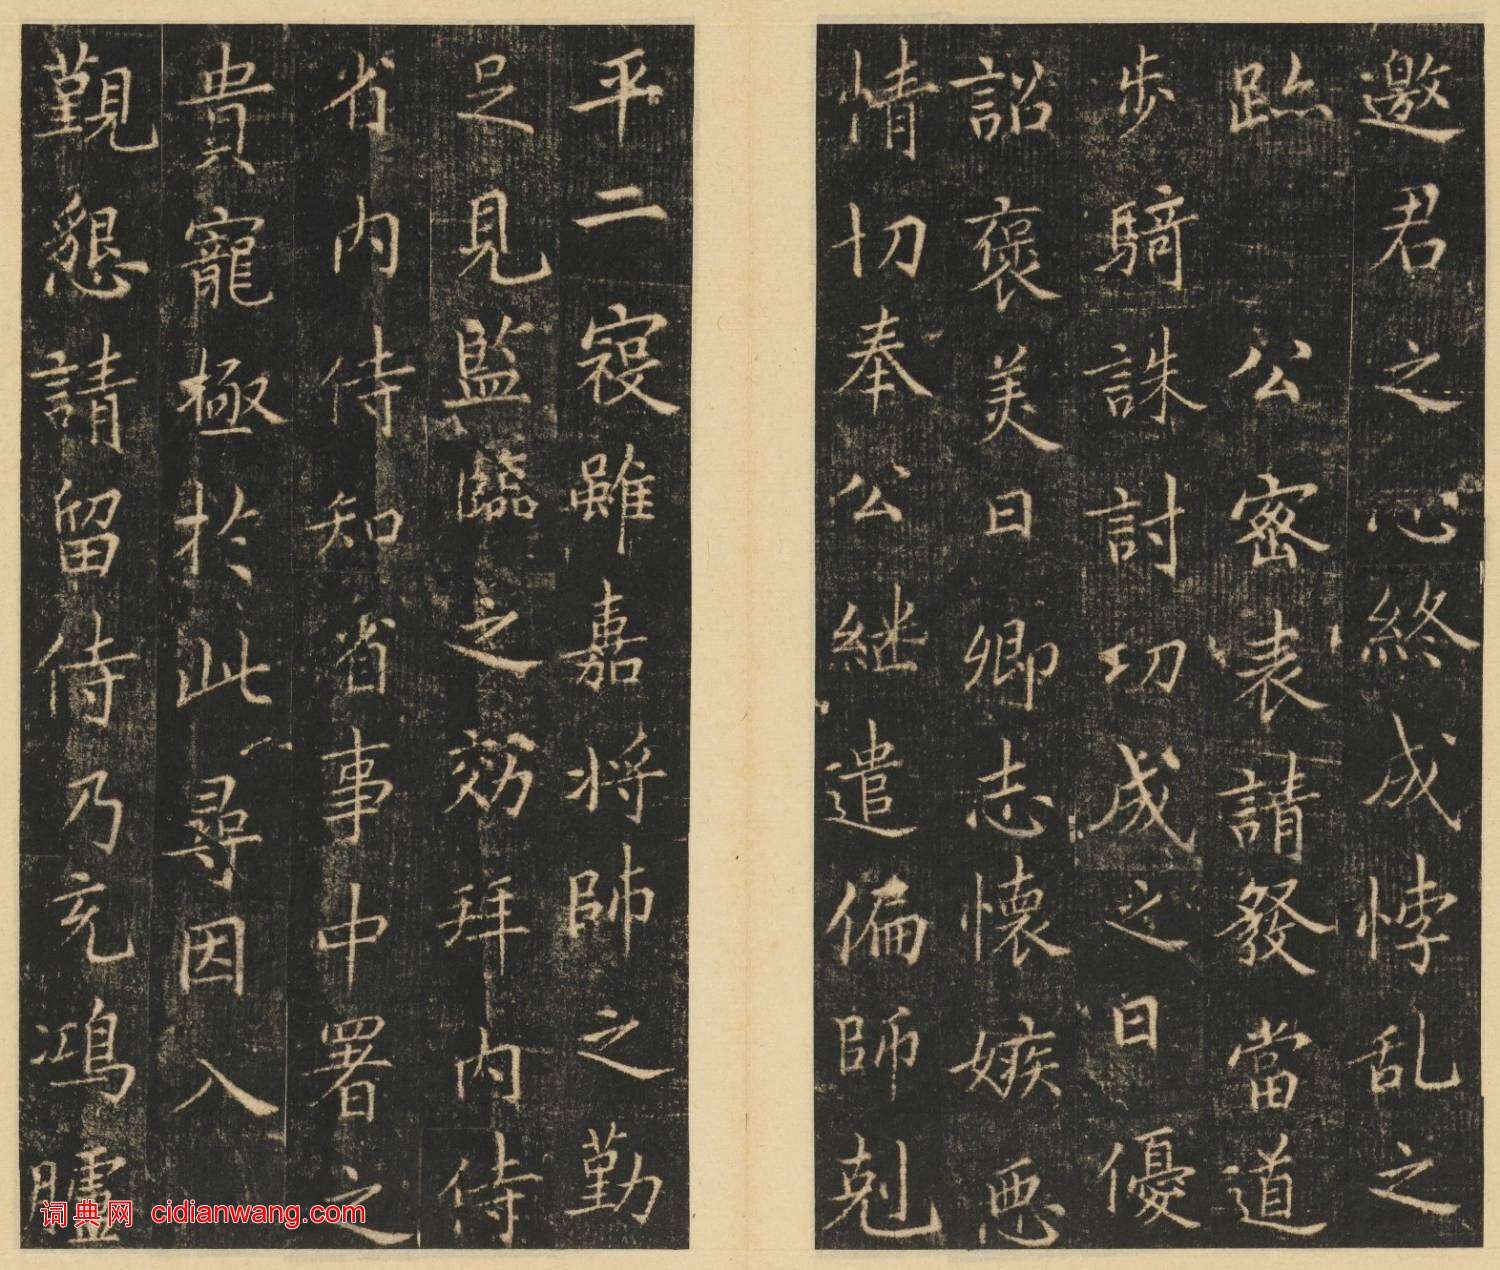 邀君之心終成悖乱之
跡公密表請發當道
步騎誅討功成之日優
詔褒美曰卿志懷嫉惡
情切奉公继遣偏師剋
平二寇雖嘉將帥之勤
足見監臨之効拜内侍
省内侍知省事中署之
貴寵極於此尋因入
覲懇請留侍乃充鴻臚
词典网 cidianwang.com